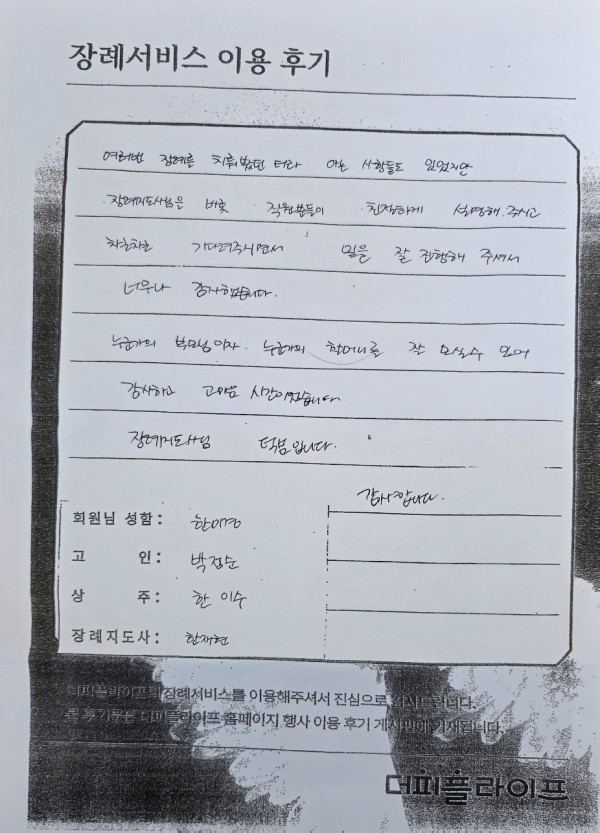 장례서비스 이용 후기
여러번 장례를 치뤄봤던 터라 아는 사항들도 있었지만
장례지도사님은 비롯 직원분들이 친절하게 설명해 주시고
차근차근 기다려주시면서 일을 잘 진행해 주셔서
너무나 감사했습니다.
누군가의 부모님이자. 누군가의 할머니를 잘 모실수 있어
감사하고 고마운 시간이었습니다
장례지도사님 덕분입니다.
감사합니다.
회원님 성함: 한미경
고 인: 박정순
상 주: 한이수
장례지도사: 한재현
더피플라이프 장례서비스를 이용해주셔서 진심으로 감사드립니다.
본 후기문은 더피플라이프 홈페이지 행사 이용 후기 게시판에 기재됩니다.
더피플라이프